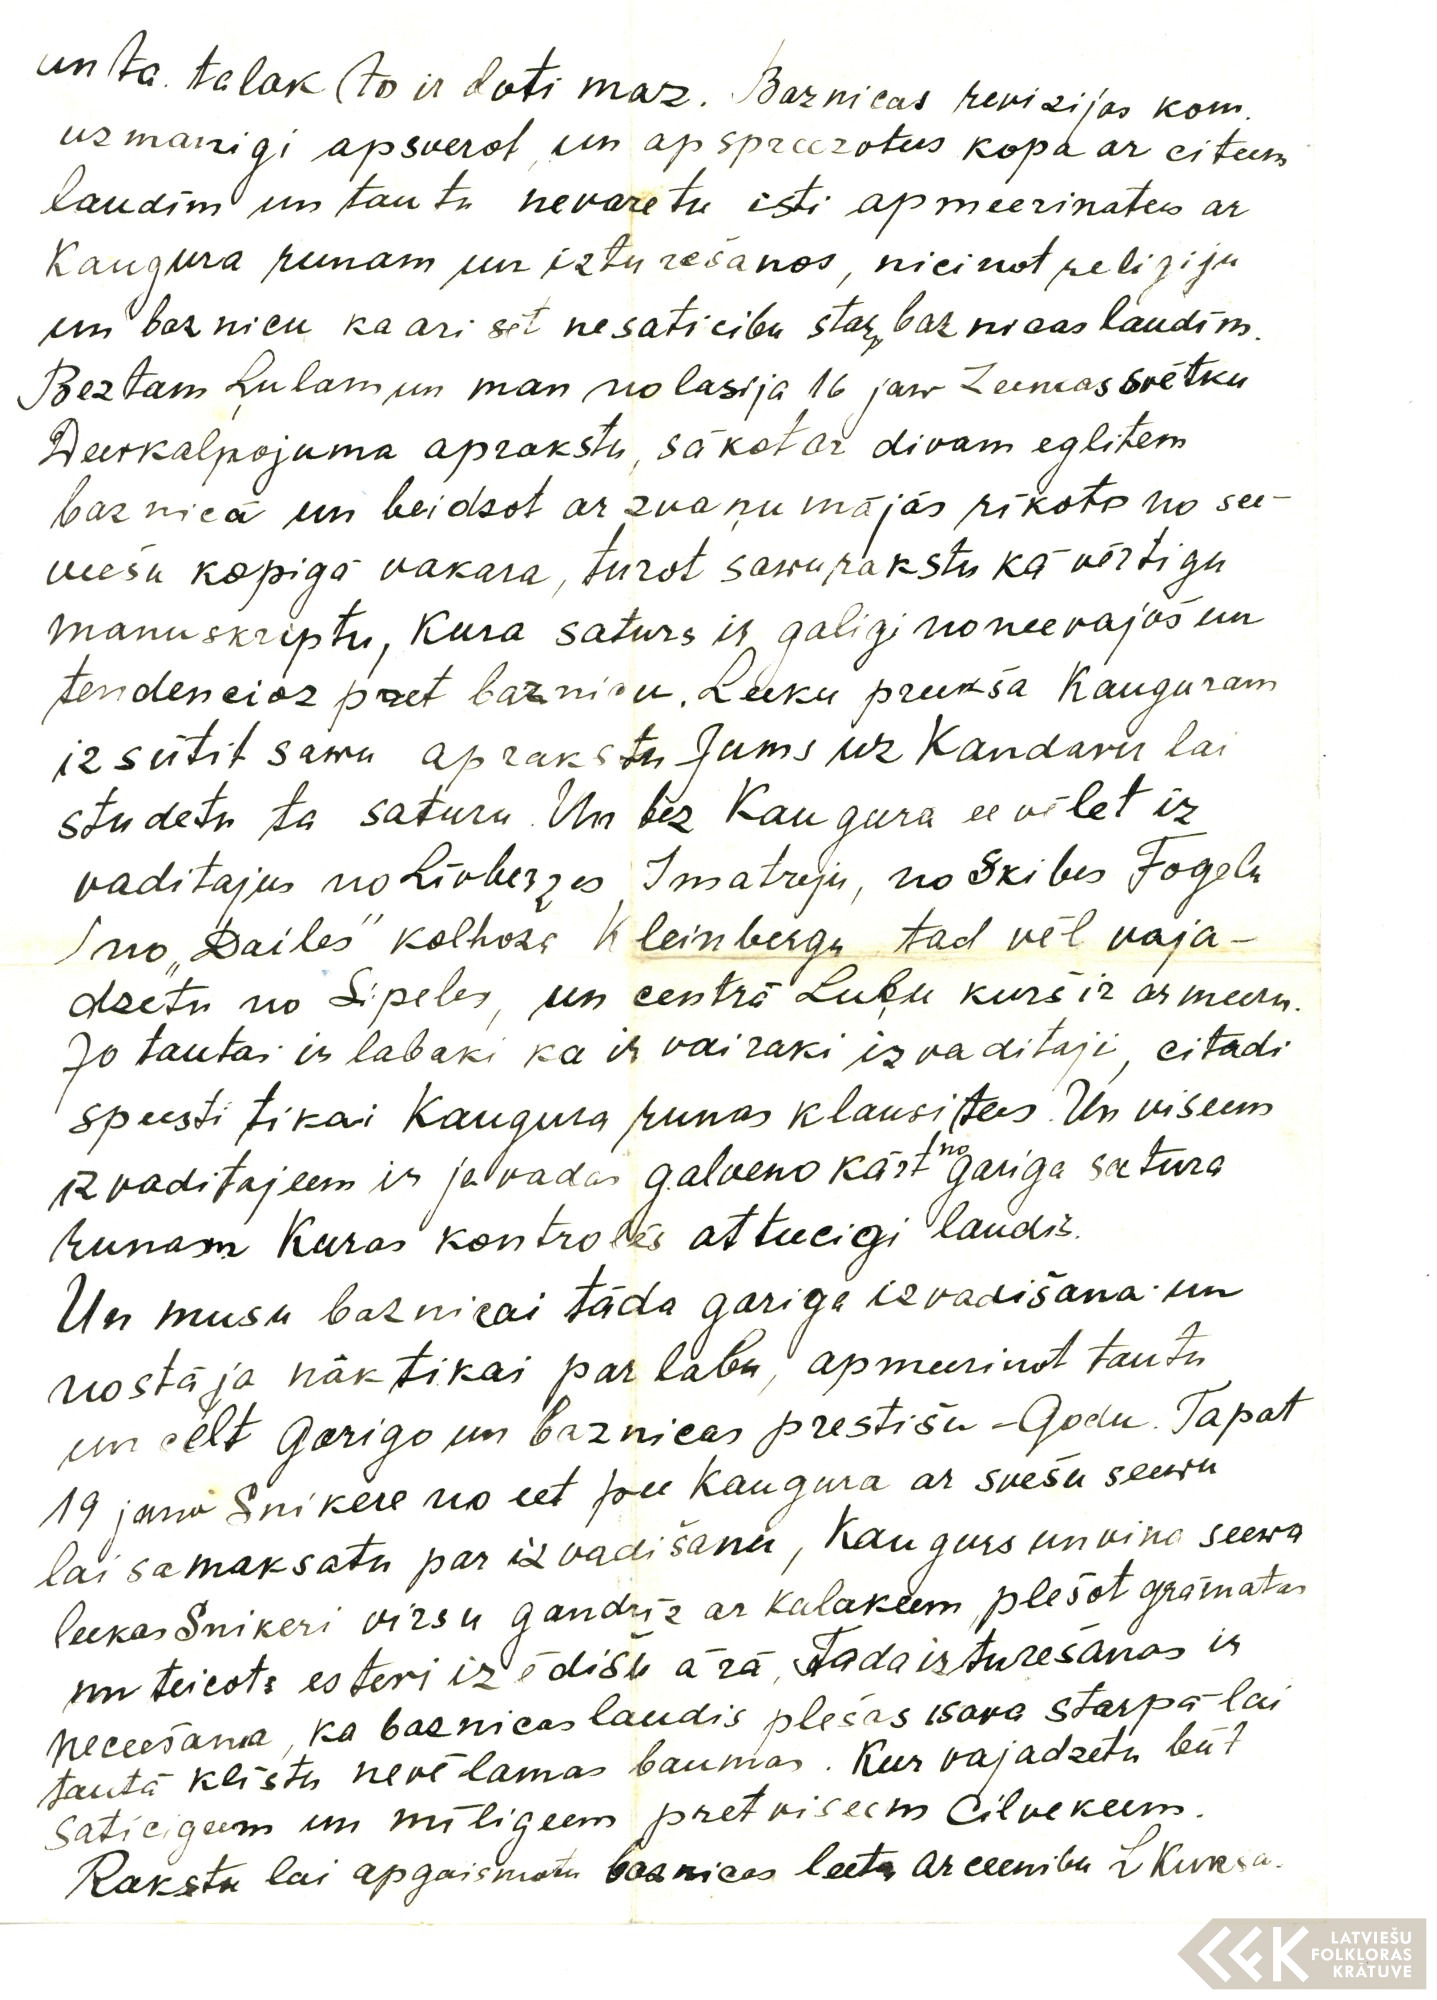 un ta. talak (to ir loti maz. Baznicas revizijas kom.
uzmanigi apsverot, un apspreezotus kopa ar citeem
laudim un tautu nevaretu isti apmeerinatees ar
Kaugura runam un izturešanos, nicinot religiju
un baznicu ka ari sēt nesaticibu starp baznicas laudīm.
Beztam Ļulam un man nolasija 16 janv Zeemassvētku
Deevkalpojuma aprakstu, sākot ar divam eglitem
baznicā un beidzot ar zvaņu mājās rīkoto no see-
veešu kopigā vakara, turot sawu rakstu kā vērtigu
manuskriptu, Kura saturs ir galigi noneevajošs un
tendencioz pret baznicu. Leeku preekša Kauguram
izsūtit sawu aprakstu Jums uz Kandavu lai
studetu ta saturu. Un bez Kaugura eevēlet iz
vaditajus no Līvberzes, Imatreju, no Skibes Fogelu
/no „Dailes" kolhoza Kleinbergu tad vēl vaja-
dzetu no Sipeles, un centrā Luļu kurš ir ar meeru.
Jo tautai ir labaki ka ir vairaki izvaditaji, citadi
speesti tikai Kaugura runas klausitees. Un viseem
izvaditajeem ir javadas galvenokārt no gariga satura
runam Kuras kontrolēs atteecigi laudis.
Un musu baznicai tāda gariga izvadišana un
nostāja nāk tikai par labu, apmeerinot tautu
un celt Garigo un baznicas prestišu - Godu. Tapat
19 janv Snikere noeet pee Kaugura ar svešu seewu
lai samaksatu par izvadišanu, Kaugurs un vina seewa
leekas Snikeri virsu gandrīz ar kulakeem, plešot grāmatas
un teicots esteri izēdišu ārā, Tada izturešanas ir
neceešama, ka baznicas laudis plešas sava starpā lai
tautā klīstu nevēlamas baumas. Kur vajadzetu būt
saticigeem un mīligeem pret viseem Cilvekeem.
Rakstu lai apgaismotu baznicas leetu ar ceenibu L Kuksa.
LATVIEŠU
FOLKLORAS
KRĀTUVE